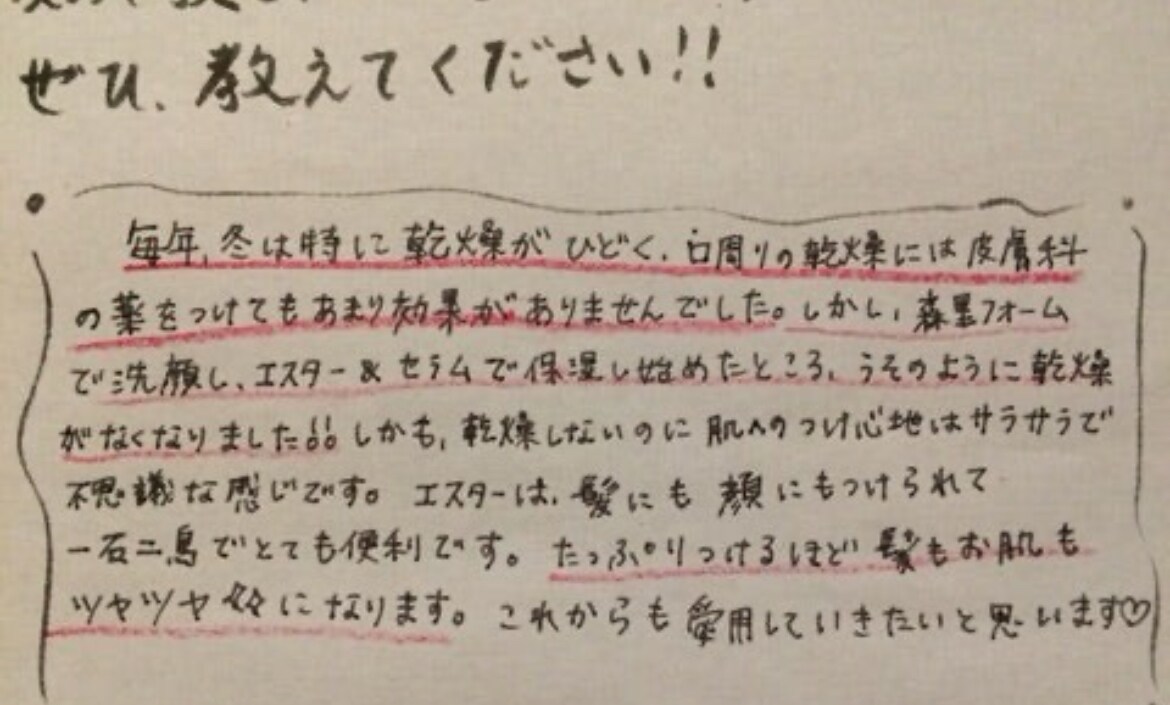 ぜひ、教えてください!!
毎年、冬は特に乾燥がひどく、口周りの乾燥には皮膚科
の薬をつけてもあまり効果がありませんでした。しかし、森里フォーム
で洗顔し、エスター&セラムで保湿し始めたところ、うそのように乾燥
がなくなりました!!しかも、乾燥しないのに肌へのつけ心地はサラサラで
不思議な感じです。エスターは、髪にも顔にもつけられて
一石二鳥でとても便利です。たっぷりつけるほど髪もお肌も
ツヤツヤ になります。これからも愛用していきたいと思います♡